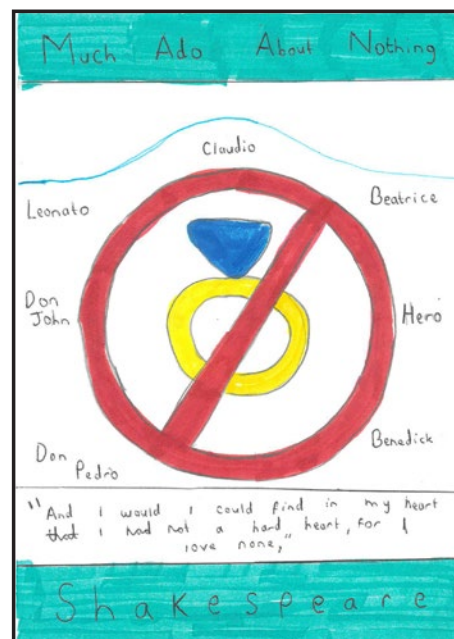 Much Ado About Nothing
Claudio
Leonato
Beatrice
Don
John
Hero
Don
Pedro
Benedick
"And I would I could find in my heart
that I had not a hard heart, for I
love none,"
Shakespeare